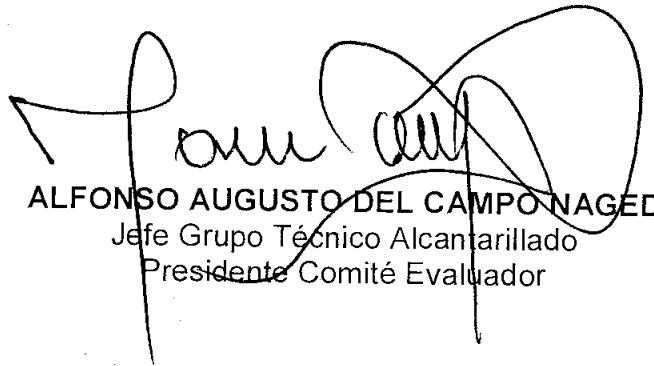 ALFONSO AUGUSTO DEL CAMPO NAGED
Jefe Grupo Técnico Alcantarillado
Presidente Comité Evaluador